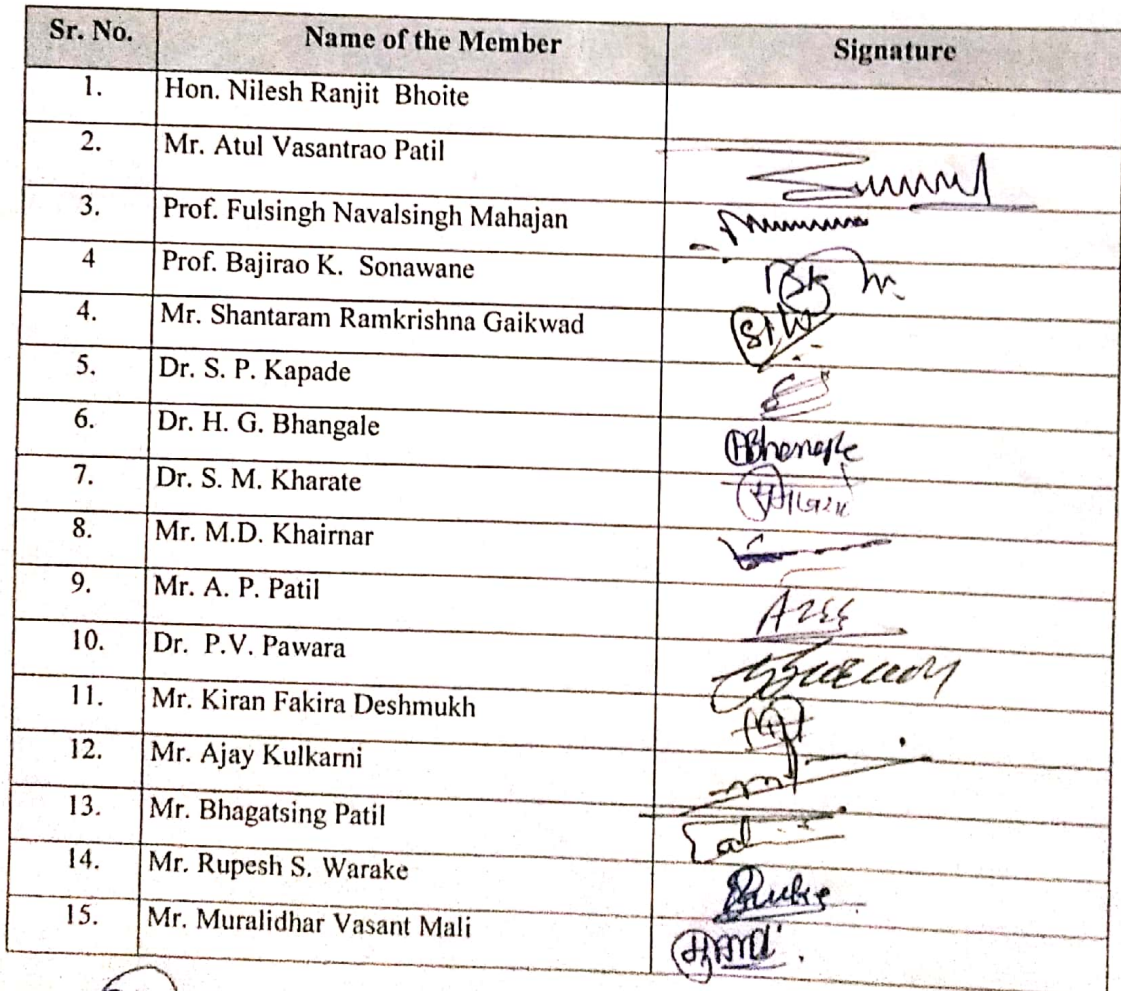 Sr. No. Name of the Member Signature
1. Hon. Nilesh Ranjit Bhoite
2. Mr. Atul Vasantrao Patil
3. Prof. Fulsingh Navalsingh Mahajan
4 Prof. Bajirao K. Sonawane
4. Mr. Shantaram Ramkrishna Gaikwad
5. Dr. S. P. Kapade
6. Dr. H. G. Bhangale
7. Dr. S. M. Kharate
8. Mr. M.D. Khairnar
9. Mr. A. P. Patil
10. Dr. P.V. Pawara
11. Mr. Kiran Fakira Deshmukh
12. Mr. Ajay Kulkarni
13. Mr. Bhagatsing Patil
14. Mr. Rupesh S. Warake
15. Mr. Muralidhar Vasant Mali